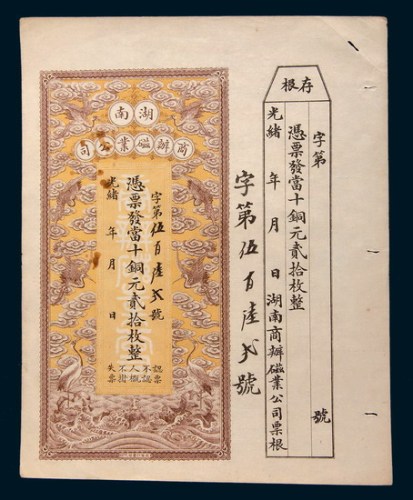 存根
字第 號
憑票發當十銅元貳拾枚整
光緒 年 月 日湖南商辦磁業公司票根
字第伍百陸弍號
湖南
商辦磁業公司
字第伍百陸弍號
憑票發當十銅元貳拾枚整
光緒 年 月 日
認票
不認
人概
不掛
失票